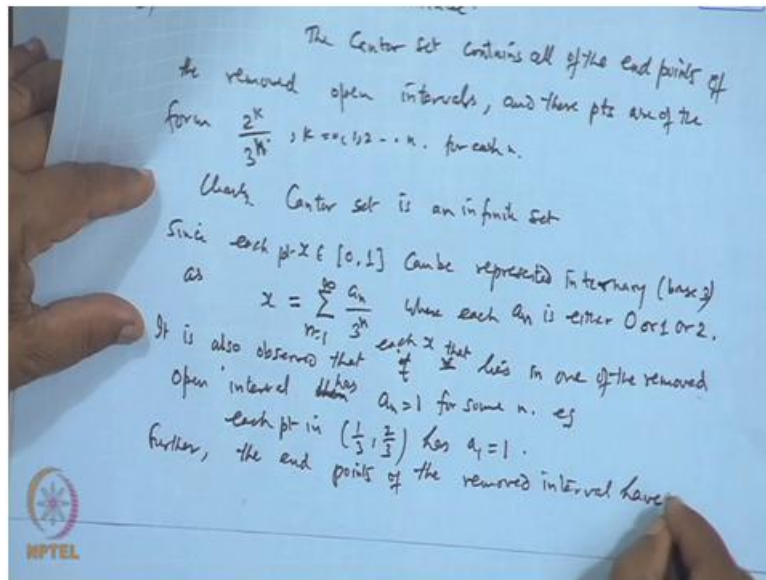 The Cantor set contains all of the end points of
the removed open intervals, and these pts are of the
form 2^k/3^n, k=0,1,2--- n. for each n.
Clearly Cantor set is an infinite set
Since each pt x ∈ [0,1] can be represented in ternary (base 3)
as x = ∑_{n=1}^{∞} a_n/3^n where each a_n is either 0 or 1 or 2.
It is also observed that each x that lies in one of the removed
open interval has a_n=1 for some n. eg
each pt in (1/3, 2/3) has a_1=1.
Further, the end points of the removed interval have
NPTEL